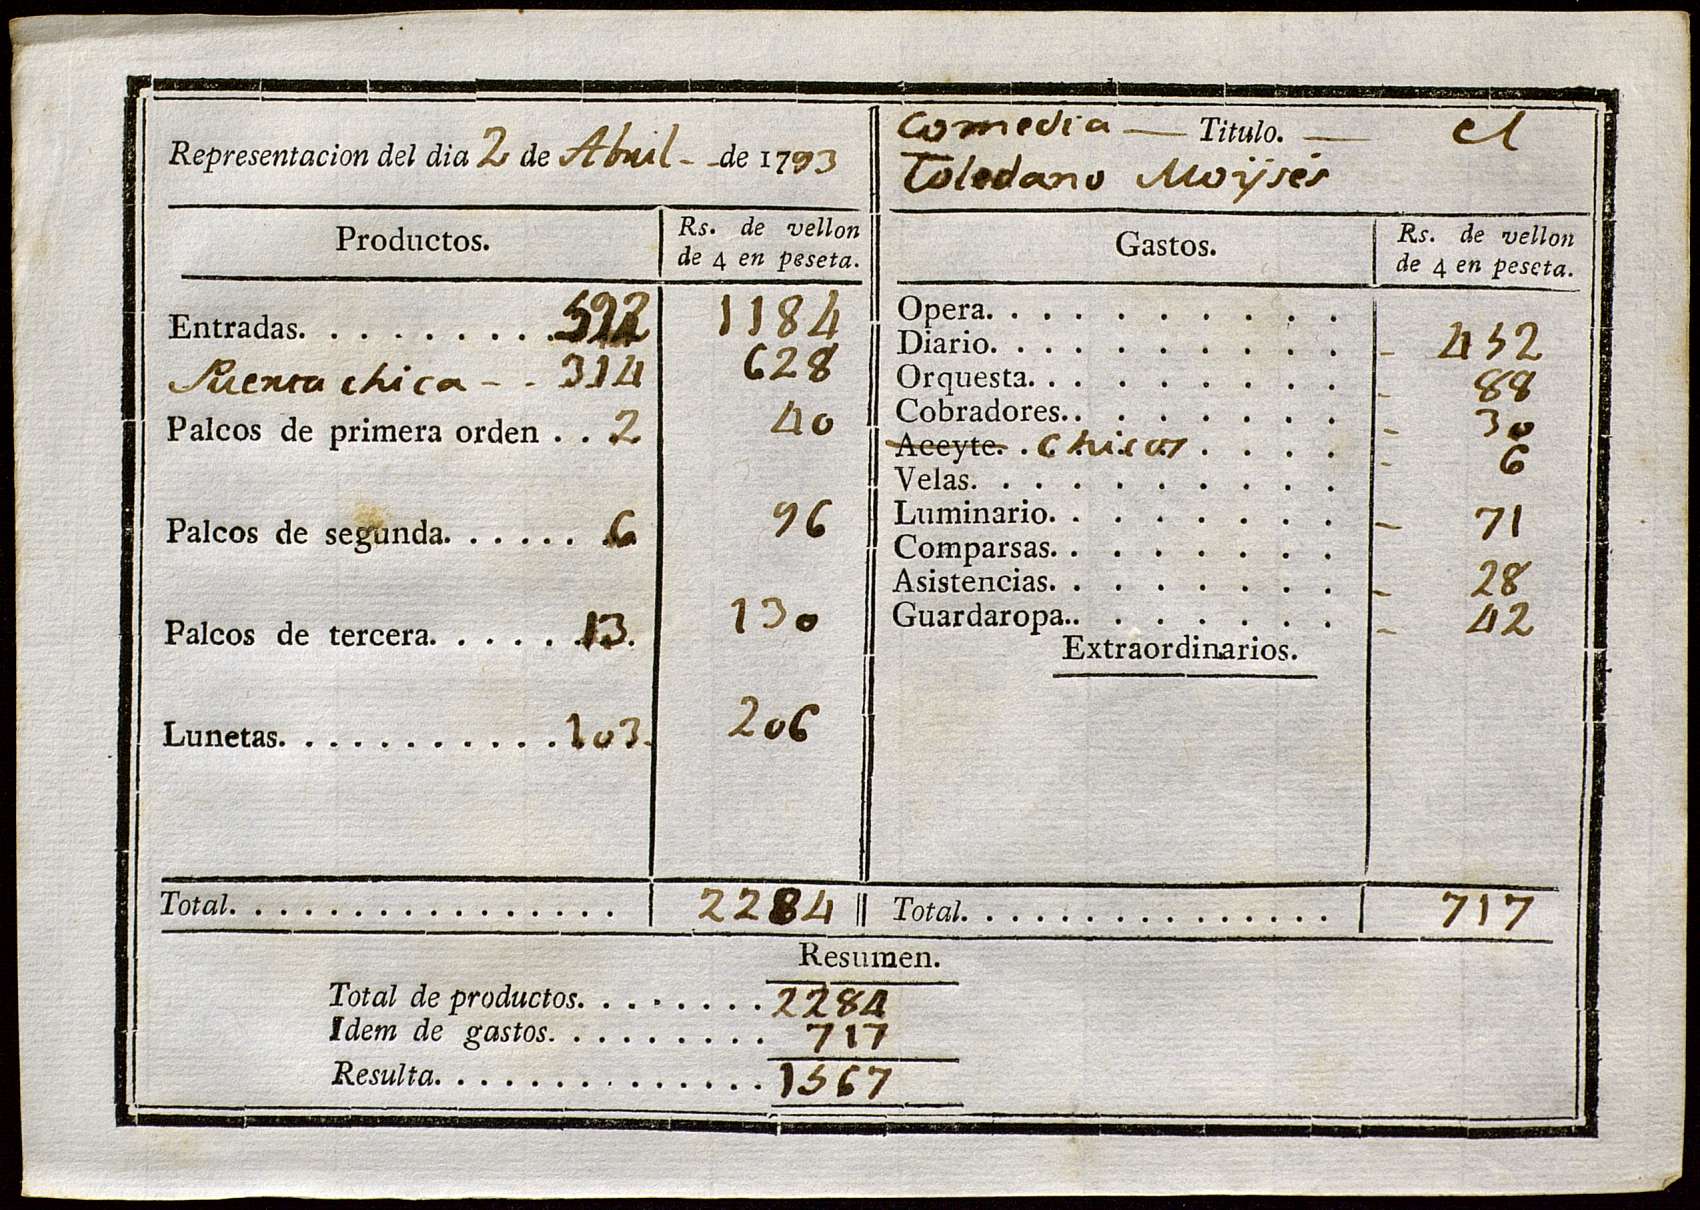 Representacion del dia 2 de Abril - - de 1793
Comedia — Titulo. — el
Toledano Moÿsés
Productos.
Rs. de vellon
de 4 en peseta.
Entradas. . . . . . . . 592 1184
Puerta chica - - 314 628
Palcos de primera orden . . 2 40
Palcos de segunda. . . . . . 6 96
Palcos de tercera. . . . . . 13. 130
Lunetas. . . . . . . . . . . . 103. 206
Total. . . . . . . . . . . . . . . . 2284
Gastos.
Rs. de vellon
de 4 en peseta.
Opera. . . . . . . . . .
Diario. . . . . . . . . . - 452
Orquesta. . . . . . . . . - 88
Cobradores. . . . . . . . - 30
Aceyte. . Chicos . . . . - 6
Velas. . . . . . . . . . .
Luminario. . . . . . . . - 71
Comparsas. . . . . . . .
Asistencias. . . . . . . . - 28
Guardaropa. . . . . . . . - 42
Extraordinarios.
Total. . . . . . . . . . . . . . . . 717
Resumen.
Total de productos. . . . . . . . 2284
Idem de gastos. . . . . . . . . 717
Resulta. . . . . . . . . . . . . . 1567